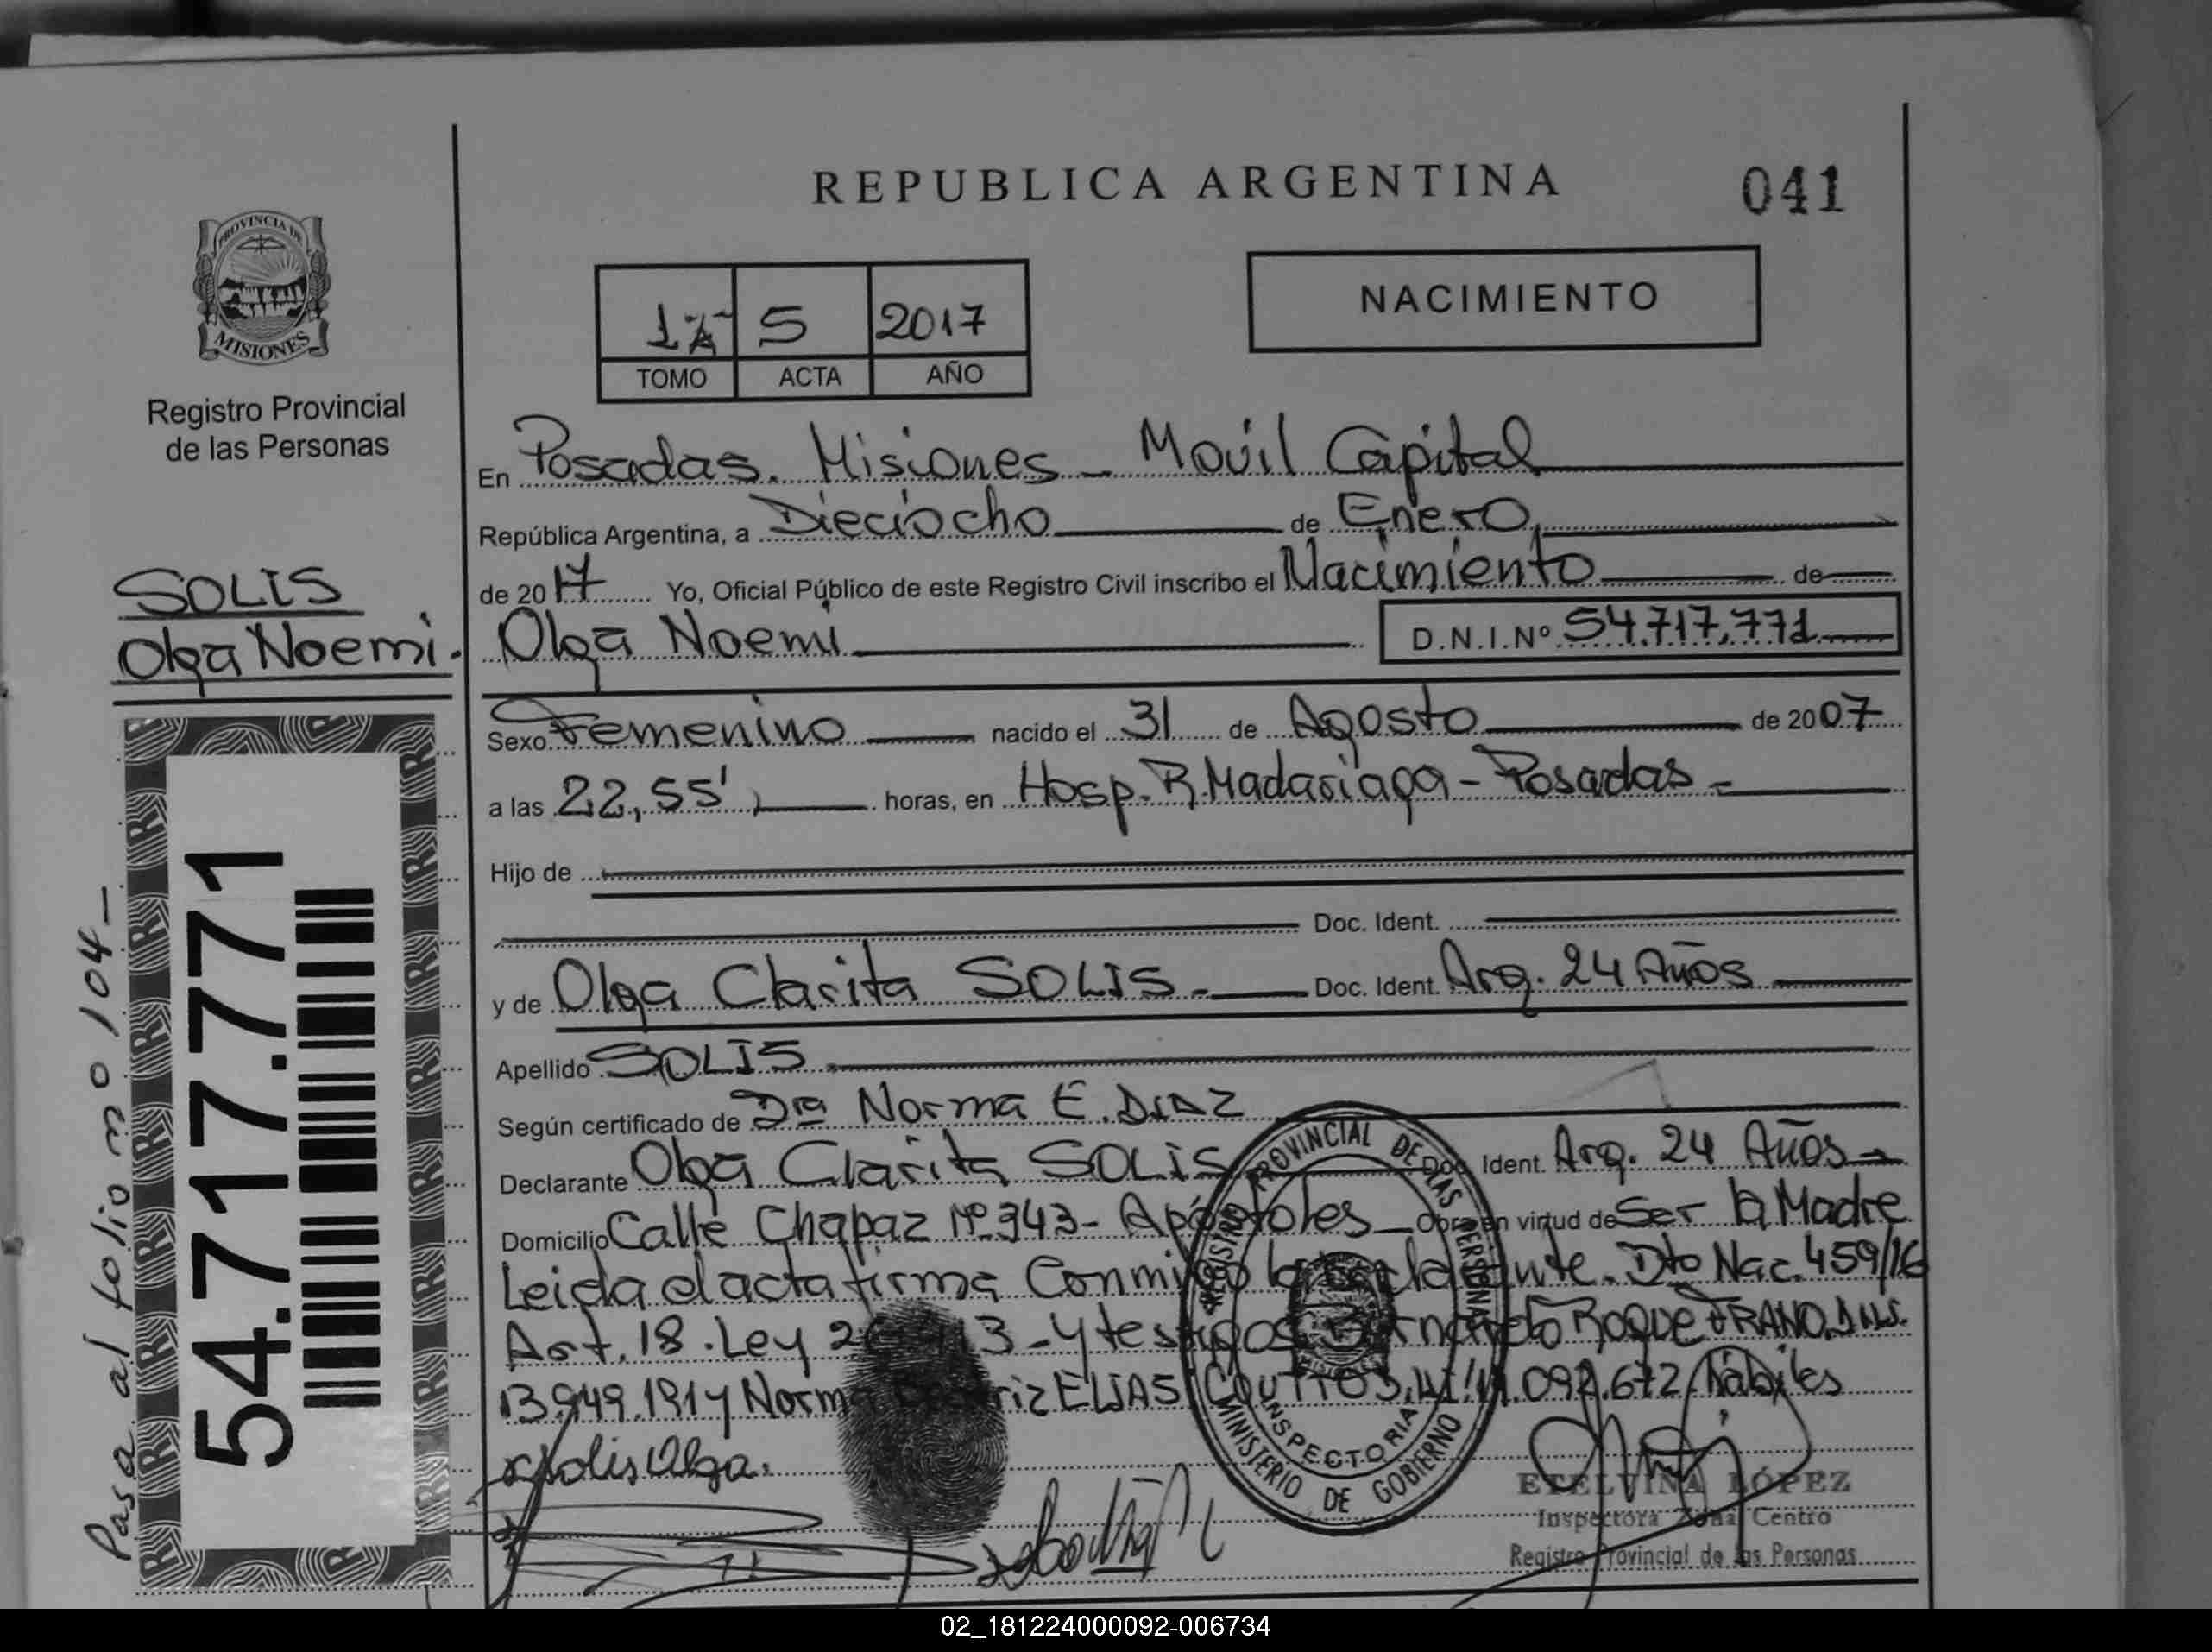 REPUBLICA ARGENTINA
041
PROVINCIA DE
MISIONES
Registro Provincial
de las Personas
5 2017
TOMO ACTA AÑO
NACIMIENTO
En Posadas. Misiones - Movil Capital
República Argentina, a Dieciocho de Enero,
de 2017 Yo, Oficial Público de este Registro Civil inscribo el Nacimiento de
SOLIS
Olga Noemi.
Olga Noemi D.N.I.Nº 54.717.771
Sexo Femenino nacido el 31 de Agosto de 2007
a las 22,55' horas, en Hosp. R. Madariaga - Posadas -
Hijo de
Doc. Ident.
y de Olga Clarita SOLIS - Doc. Ident. Arg. 24 Años
Apellido SOLIS
Según certificado de Dra Norma E. DIAZ
Declarante Olga Clarita SOLIS Doc. Ident. Arg. 24 Años
Domicilio Calle Chapaz Nº 343 - Apóstoles - Obra en virtud de Ser la Madre
Leida el acta firma Conmigo la Declarante. Dto Nac. 459/16
Art. 18. Ley - y testigos Roque
y Norma ELIAS COUTTO hábiles
Solis Olga.
54.717.771
Pasa al folio nº 104 -
REGISTRO PROVINCIAL DE LAS PERSONAS
INSPECTORIA
MINISTERIO DE GOBIERNO
ETELVINA LÓPEZ
Inspectora Zona Centro
Registro Provincial de las Personas
02_181224000092-006734